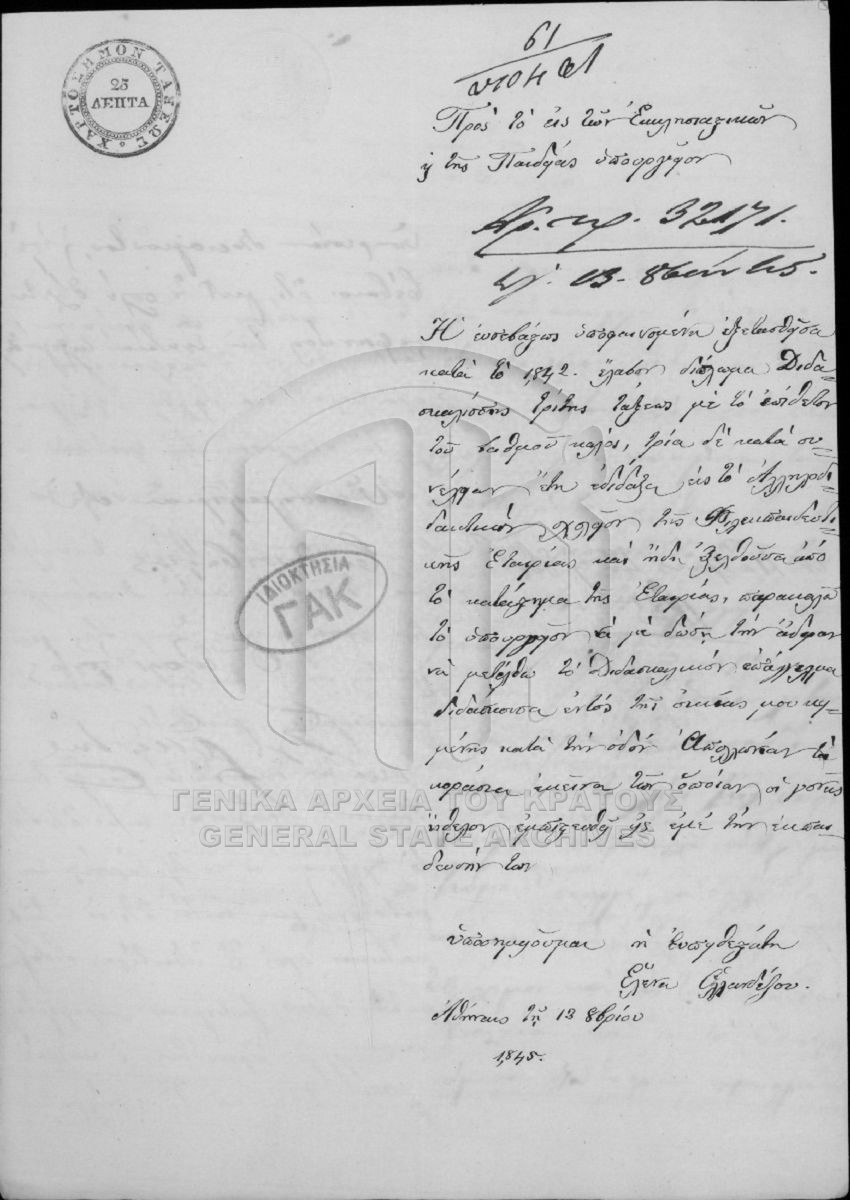 ΧΑΡΤΟΣΗΜΟΝ ΤΑΞΕΩΣ
25
ΛΕΠΤΑ
61
Πρὸς τὸ ἐπὶ τῶν Ἐκκλησιαστικῶν
ϗ τῆς Παιδείας ὑπουργεῖον
Ἀρ. πρ. 32171.
13 8βρίου 45.
Ἡ εὐσεβάστως ὑποφαινομένη ἐξετασθεῖσα
κατὰ τὸ 1842. ἔλαβον δίπλωμα Διδα-
σκαλίσσης τρίτης τάξεως μὲ τὸ ἐπίθετον
τοῦ βαθμοῦ καλῶς, τρία δὲ κατὰ συ-
νέχειαν ἔτη ἐδίδαξα εἰς τὸ Ἀλληλοδι-
δακτικὸν σχολεῖον τῆς Φιλεκπαιδευτι-
κῆς Ἑταιρίας καὶ ἤδη ἐξελθοῦσα ἀπὸ
τὸ κατάστημα τῆς Ἑταιρίας, παρακαλῶ
τὸ ὑπουργεῖον νὰ μὲ δώσῃ τὴν ἄδειαν
νὰ μετέλθω τὸ Διδασκαλικὸν ἐπάγγελμα
διδάσκουσα ἐντὸς τῆς οἰκίας μου κει-
μένης κατὰ τὴν ὁδὸν Ἀπόλλωνος τὰ
κοράσια ἐκεῖνα τῶν ὁποίων οἱ γονεῖς
ἤθελον ἐμπιστευθῆ εἰς ἐμὲ τὴν ἐκπαί-
δευσήν των
ὑποσημειοῦμαι ἡ εὐπειθεστάτη
Ἑλένα
Ἀθήναις τῇ 13 8βρίου
1845.
ΙΔΙΟΚΤΗΣΙΑ
ΓΑΚ
ΓΕΝΙΚΑ ΑΡΧΕΙΑ ΤΟΥ ΚΡΑΤΟΥΣ
GENERAL STATE ARCHIVES